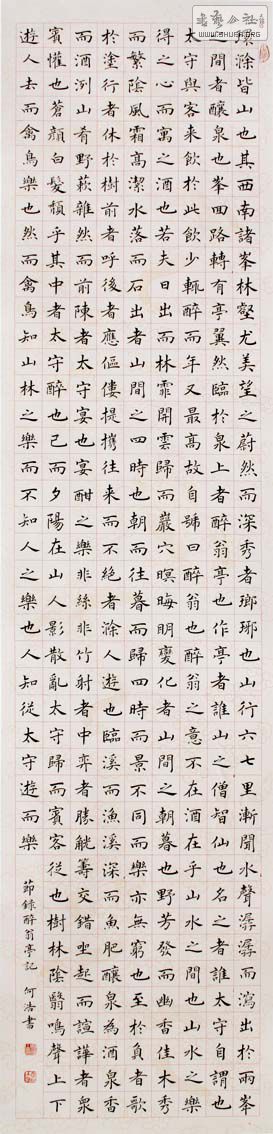 環滁皆山也其西南諸峯林壑尤美望之蔚然而深秀者瑯琊也山行六七里漸聞水聲潺潺而瀉出於兩峯
之間者釀泉也峯回路轉有亭翼然臨於泉上者醉翁亭也作亭者誰山之僧智仙也名之者誰太守自謂也
太守與客來飲於此飲少輒醉而年又最高故自號曰醉翁也醉翁之意不在酒在乎山水之間也山水之樂
得之心而寓之酒也若夫日出而林霏開雲歸而巖穴暝晦明變化者山間之朝暮也野芳發而幽香佳木秀
而繁陰風霜高潔水落而石出者山間之四時也朝而往暮而歸四時而景不同而樂亦無窮也至於負者歌
於塗行者休於樹前者呼後者應傴僂提攜往來而不絕者滁人遊也臨溪而漁溪深而魚肥釀泉為酒泉香
而酒洌山肴野蔌雜然而前陳者太守宴也宴酣之樂非絲非竹射者中弈者勝觥籌交錯坐起而諠譁者眾
賓懽也蒼顏白髮頹乎其中者太守醉也已而夕陽在山人影散亂太守歸而賓客從也樹林陰翳鳴聲上下
遊人去而禽鳥樂也然而禽鳥知山林之樂而不知人之樂也人知從太守遊而樂
節錄醉翁亭記 何浩書